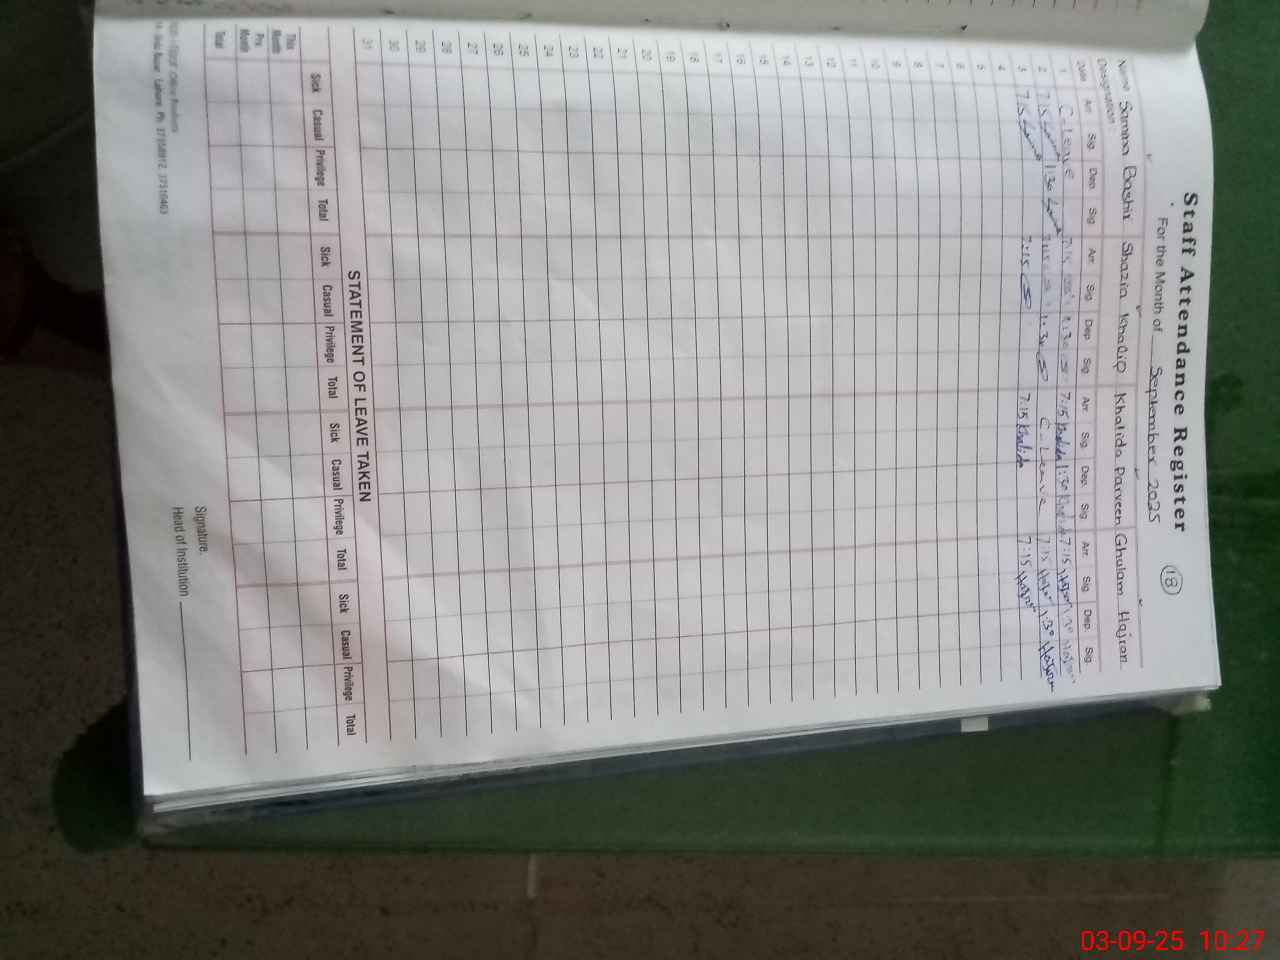 Staff Attendance Register
18
For the Month of September 2025
Name Samina Bashir Shazia Khaliq Khalida Parveen Ghulam Hajran
Designation:
Date Arr. Sig. Dep. Sig. Arr. Sig. Dep. Sig. Arr. Sig. Dep. Sig. Arr. Sig. Dep. Sig.
1 C-Leave 7:15 1:30 7:15 Khalida 1:30 Khalida 7:15 Hajran 1:30 Hajran
2 7:15 1:30 7:15 1:30 C-Leave 7:15 Hajran 1:30 Hajran
3 7:15 7:15 7:15 Khalida 7:15 Hajran
4
5
6
7
8
9
10
11
12
13
14
15
16
17
18
19
20
21
22
23
24
25
26
27
28
29
30
31
STATEMENT OF LEAVE TAKEN
Sick Casual Privilege Total Sick Casual Privilege Total Sick Casual Privilege Total Sick Casual Privilege Total
This Month
Pre Month
Total
Signature.
Head of Institution
Office Products
Lahore. Ph:
03-09-25 10:27